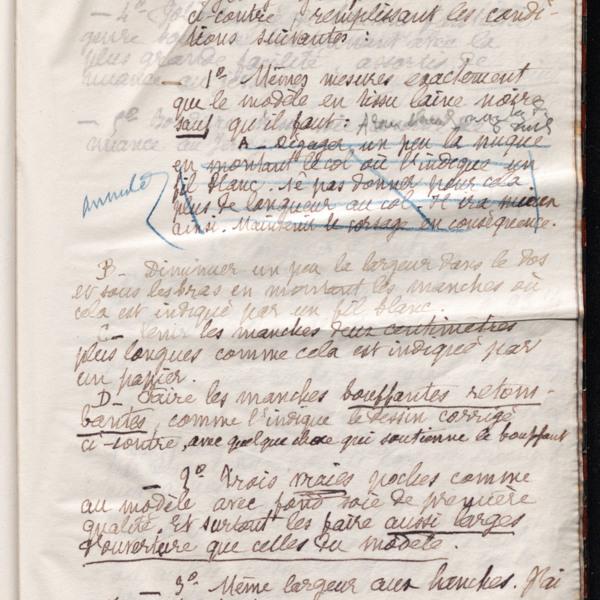 ci-contre remplissant les condi-
tions suivantes :
— 1º Mêmes mesures exactement
que le modèle en tissu laine noire
sauf qu'il faut :
A — Dégager un peu la nuque
en montant le col où l'indique un
fil blanc. Ne pas donner pour cela
plus de longueur au col. Il ira mieux
ainsi. Maintenir le corsage en conséquence.
Annulé
B — Diminuer un peu la largeur dans le dos
et sous les bras en montant les manches où
cela est indiqué par un fil blanc.
C — Tenir les manches deux centimètres
plus longues comme cela est indiqué par
un papier.
D — Faire les manches bouffantes retom-
bantes, comme l'indique le dessin corrigé
ci-contre, avec quelque chose qui soutienne le bouffant
— 2º Trois vraies poches comme
au modèle avec fond soie de première
qualité. Et surtout les faire aussi larges
d'ouverture que celles du modèle.
— 3º Même largeur aux hanches. J'ai